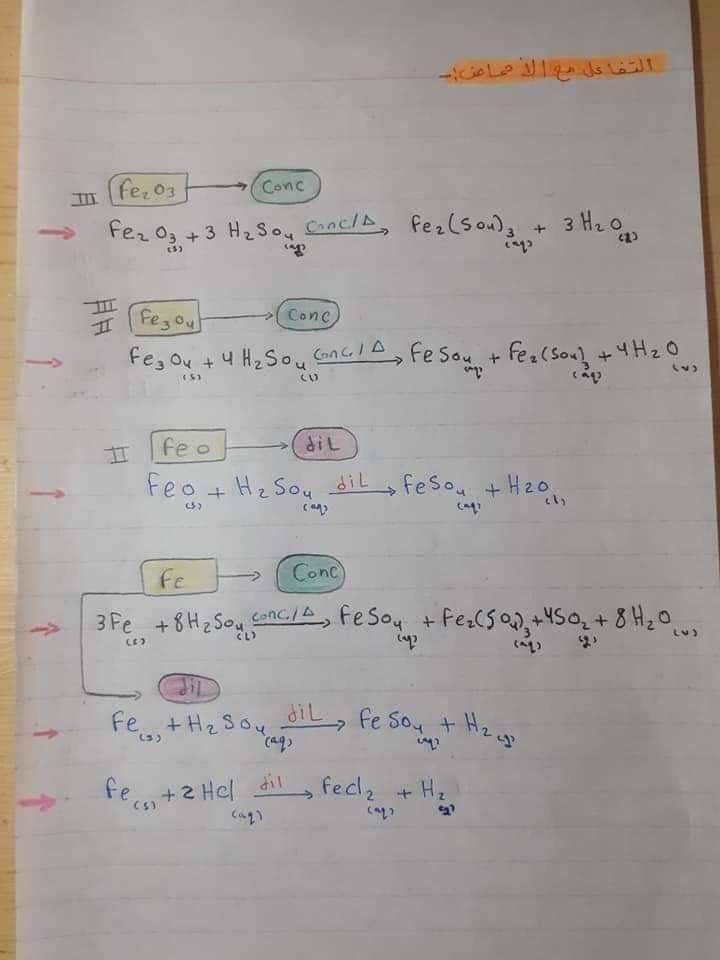 التفاعل مع الأحماض :-
III Fe2O3 → Conc
→ Fe2O3(s) + 3 H2SO4(aq) Conc/Δ → Fe2(SO4)3(aq) + 3H2O(g)
III II Fe3O4 → Conc
→ Fe3O4(s) + 4H2SO4(l) Conc/Δ → FeSO4 aq + Fe2(SO4)3(aq) + 4H2O(v)
II FeO → diL
→ FeO(s) + H2SO4(aq) diL → FeSO4(aq) + H2O(l)
Fe → Conc
→ 3Fe(s) + 8H2SO4(l) conc/Δ → FeSO4(aq) + Fe2(SO4)3(aq) + 4SO2(g) + 8H2O(v)
diL
→ Fe(s) + H2SO4(aq) diL → FeSO4(aq) + H2(g)
→ Fe(s) + 2HCl(aq) dil → FeCl2(aq) + H2(g)